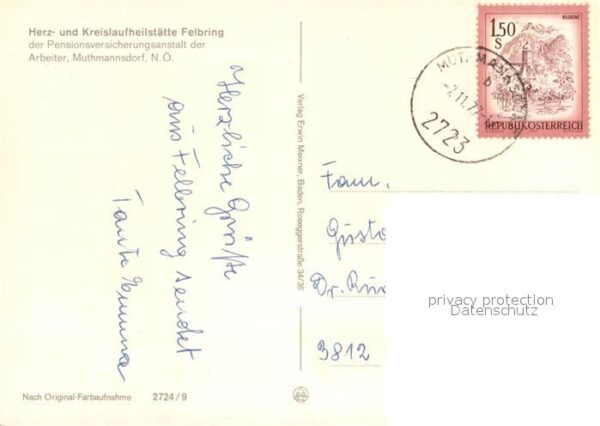 Herz- und Kreislaufheilstätte Felbring
der Pensionsversicherungsanstalt der
Arbeiter, Muthmannsdorf, N.Ö.
Herzliche Grüße
aus Felbring sendet
Tante Emma
Verlag Erwin Meixner, Baden, Roseggerstraße 34/36
BLUDENZ
1.50
S
REPUBLIK ÖSTERREICH
MUT
b
2723
Fam.
Gusta
Dr.
3812
privacy protection
Datenschutz
Nach Original-Farbaufnahme 2724/9